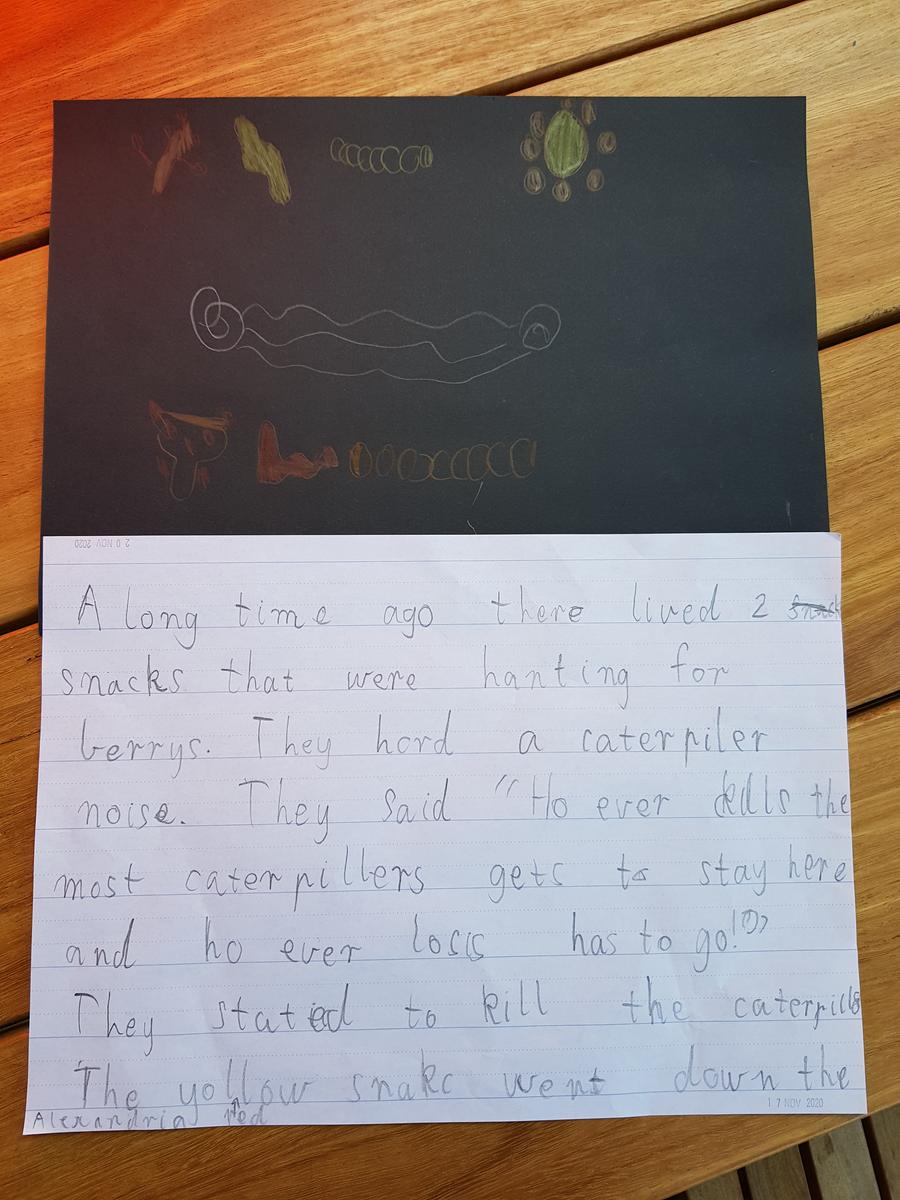 20 NOV 2020
A long time ago there lived 2
snacks that were hanting for
berrys. They hord a caterpiler
noise. They said "Ho ever kills the
most caterpillers gets to stay here
and ho ever loss has to go!"
They stated to kill the caterpills
The yollow snake went down the
17 NOV 2020
Alexandria red